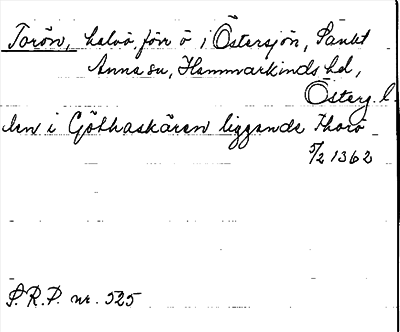 Torön, halvö, förr ö i Östersjön, Sankt
Anna sn, Hammarkinds hd,
Österg. l.
den i Göthaskären liggande Thorö
5/2 1362
S.R.P. nr. 525